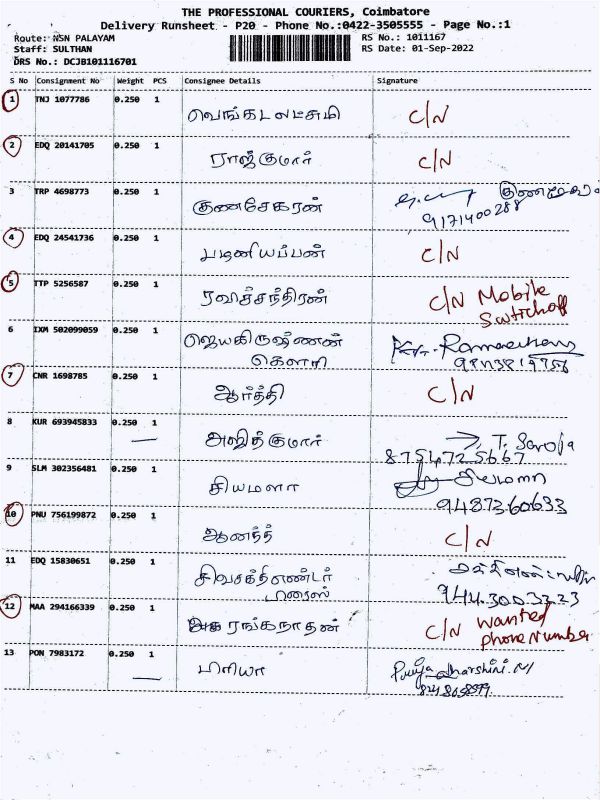 THE PROFESSIONAL COURIERS, Coimbatore
Delivery Runsheet - P20 - Phone No.:0422-3505555 - Page No.:1
Route: NSN PALAYAM RS No.: 1011167
Staff: SULTHAN RS Date: 01-Sep-2022
DRS No.: DCJB101116701
S No Consignment No Weight PCS Consignee Details Signature
1 TNJ 1077786 0.250 1 வெங்கடலட்சுமி C/N
2 EDQ 20141705 0.250 1 ராஜ்குமார் C/N
3 TRP 4698773 0.250 1 குணசேகரன்
9171400288
4 EDQ 24541736 0.250 1 பழனியப்பன் C/N
5 TTP 5256587 0.250 1 ரவிச்சந்திரன் C/N Mobile
Switchoff
6 IXM 502099059 0.250 1 ஜெயகிருஷ்ணன்
கௌரி
7 CNR 1698785 0.250 1 ஆர்த்தி C/N
8 KUR 693945833 0.250 1 அஜித்குமார் T. Saroja
8754725667
9 SLM 302356481 0.250 1 சியமளா சியமளா
9487360633
10 PNU 756199872 0.250 1 ஆனந்த் C/N
11 EDQ 15830651 0.250 1 சிவசக்தி
9443003323
12 MAA 294166339 0.250 1 அரங்கநாதன் C/N Wanted
phone Number
13 PON 7983172 0.250 1 பிரியா Priyadharshini. M